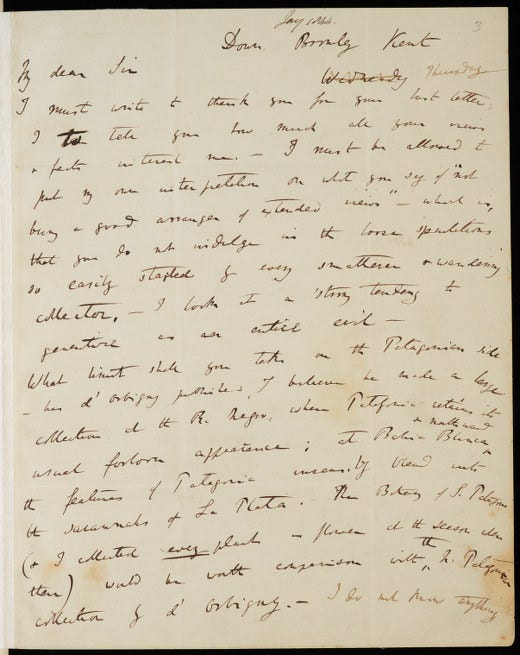 Jany 1844.
3
Down Bromley Kent
My dear Sir
Wednesday Thursday
I must write to thank you for your last letter;
I to tell you how much all your views
& facts interest me.— I must be allowed to
put my own interpretation on what you say of "not
being a good arranger of extended views"— which is,
that you do not indulge in the loose speculations
so easily started by every smatterer & wandering
collector.— I look at a strong tendency to
generalise as an entire evil—
What limit shall you take on the Patagonian side
— has d'Orbigny published, I believe he made a large
collection at the R. Negro, where Patagonia retains its
usual forlorn appearance; at Bahia Blanca
& northward
the features of Patagonia insensibly blend into
the savannahs of La Plata. The Botany of S. Patagonia
(& I collected every plant in flower at the season when
there) would be worth comparison with the N. Patagonian
collection by d'Orbigny.— I do not know anything